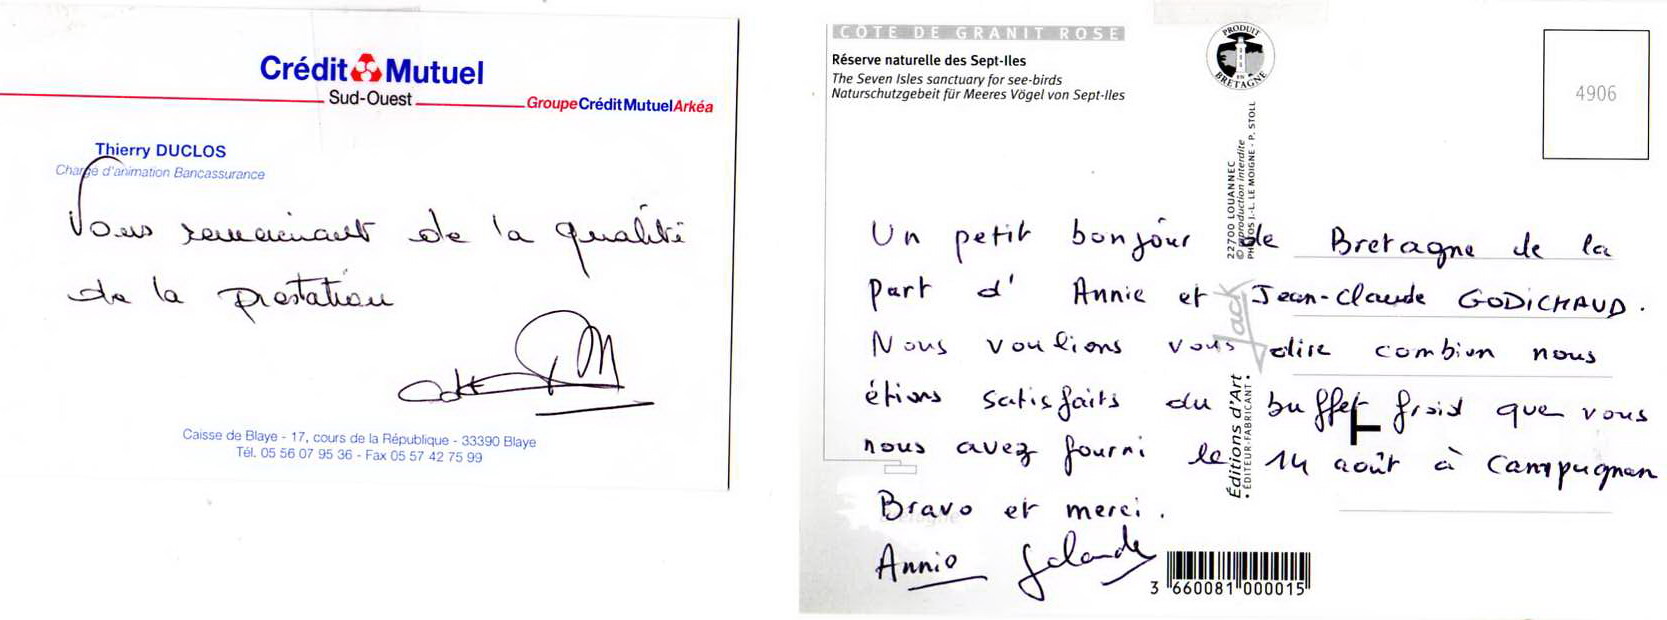 Crédit Mutuel
Sud-Ouest
Groupe Crédit Mutuel Arkéa
Thierry DUCLOS
Chargé d'animation Bancassurance
Vous remerciant de la qualité
de la prestation
Caisse de Blaye - 17, cours de la République - 33390 Blaye
Tél. 05 56 07 95 36 - Fax 05 57 42 75 99
CÔTE DE GRANIT ROSE
Réserve naturelle des Sept-Iles
The Seven Isles sanctuary for see-birds
Naturschutzgebeit für Meeres Vögel von Sept-Iles
PRODUIT
EN
BRETAGNE
4906
22700 LOUANNEC
© reproduction interdite
PHOTOS J.-L. LE MOIGNE - P. STOLL
Jack
Éditions d'Art
• ÉDITEUR-FABRICANT •
Un petit bonjour de Bretagne de la
part d' Annie et Jean-Claude GODICHAUD.
Nous voulions vous dire combien nous
étions satisfaits du buffet froid que vous
nous avez fourni le 14 août à Campugnan
Bravo et merci.
Annie
3 660081 000015